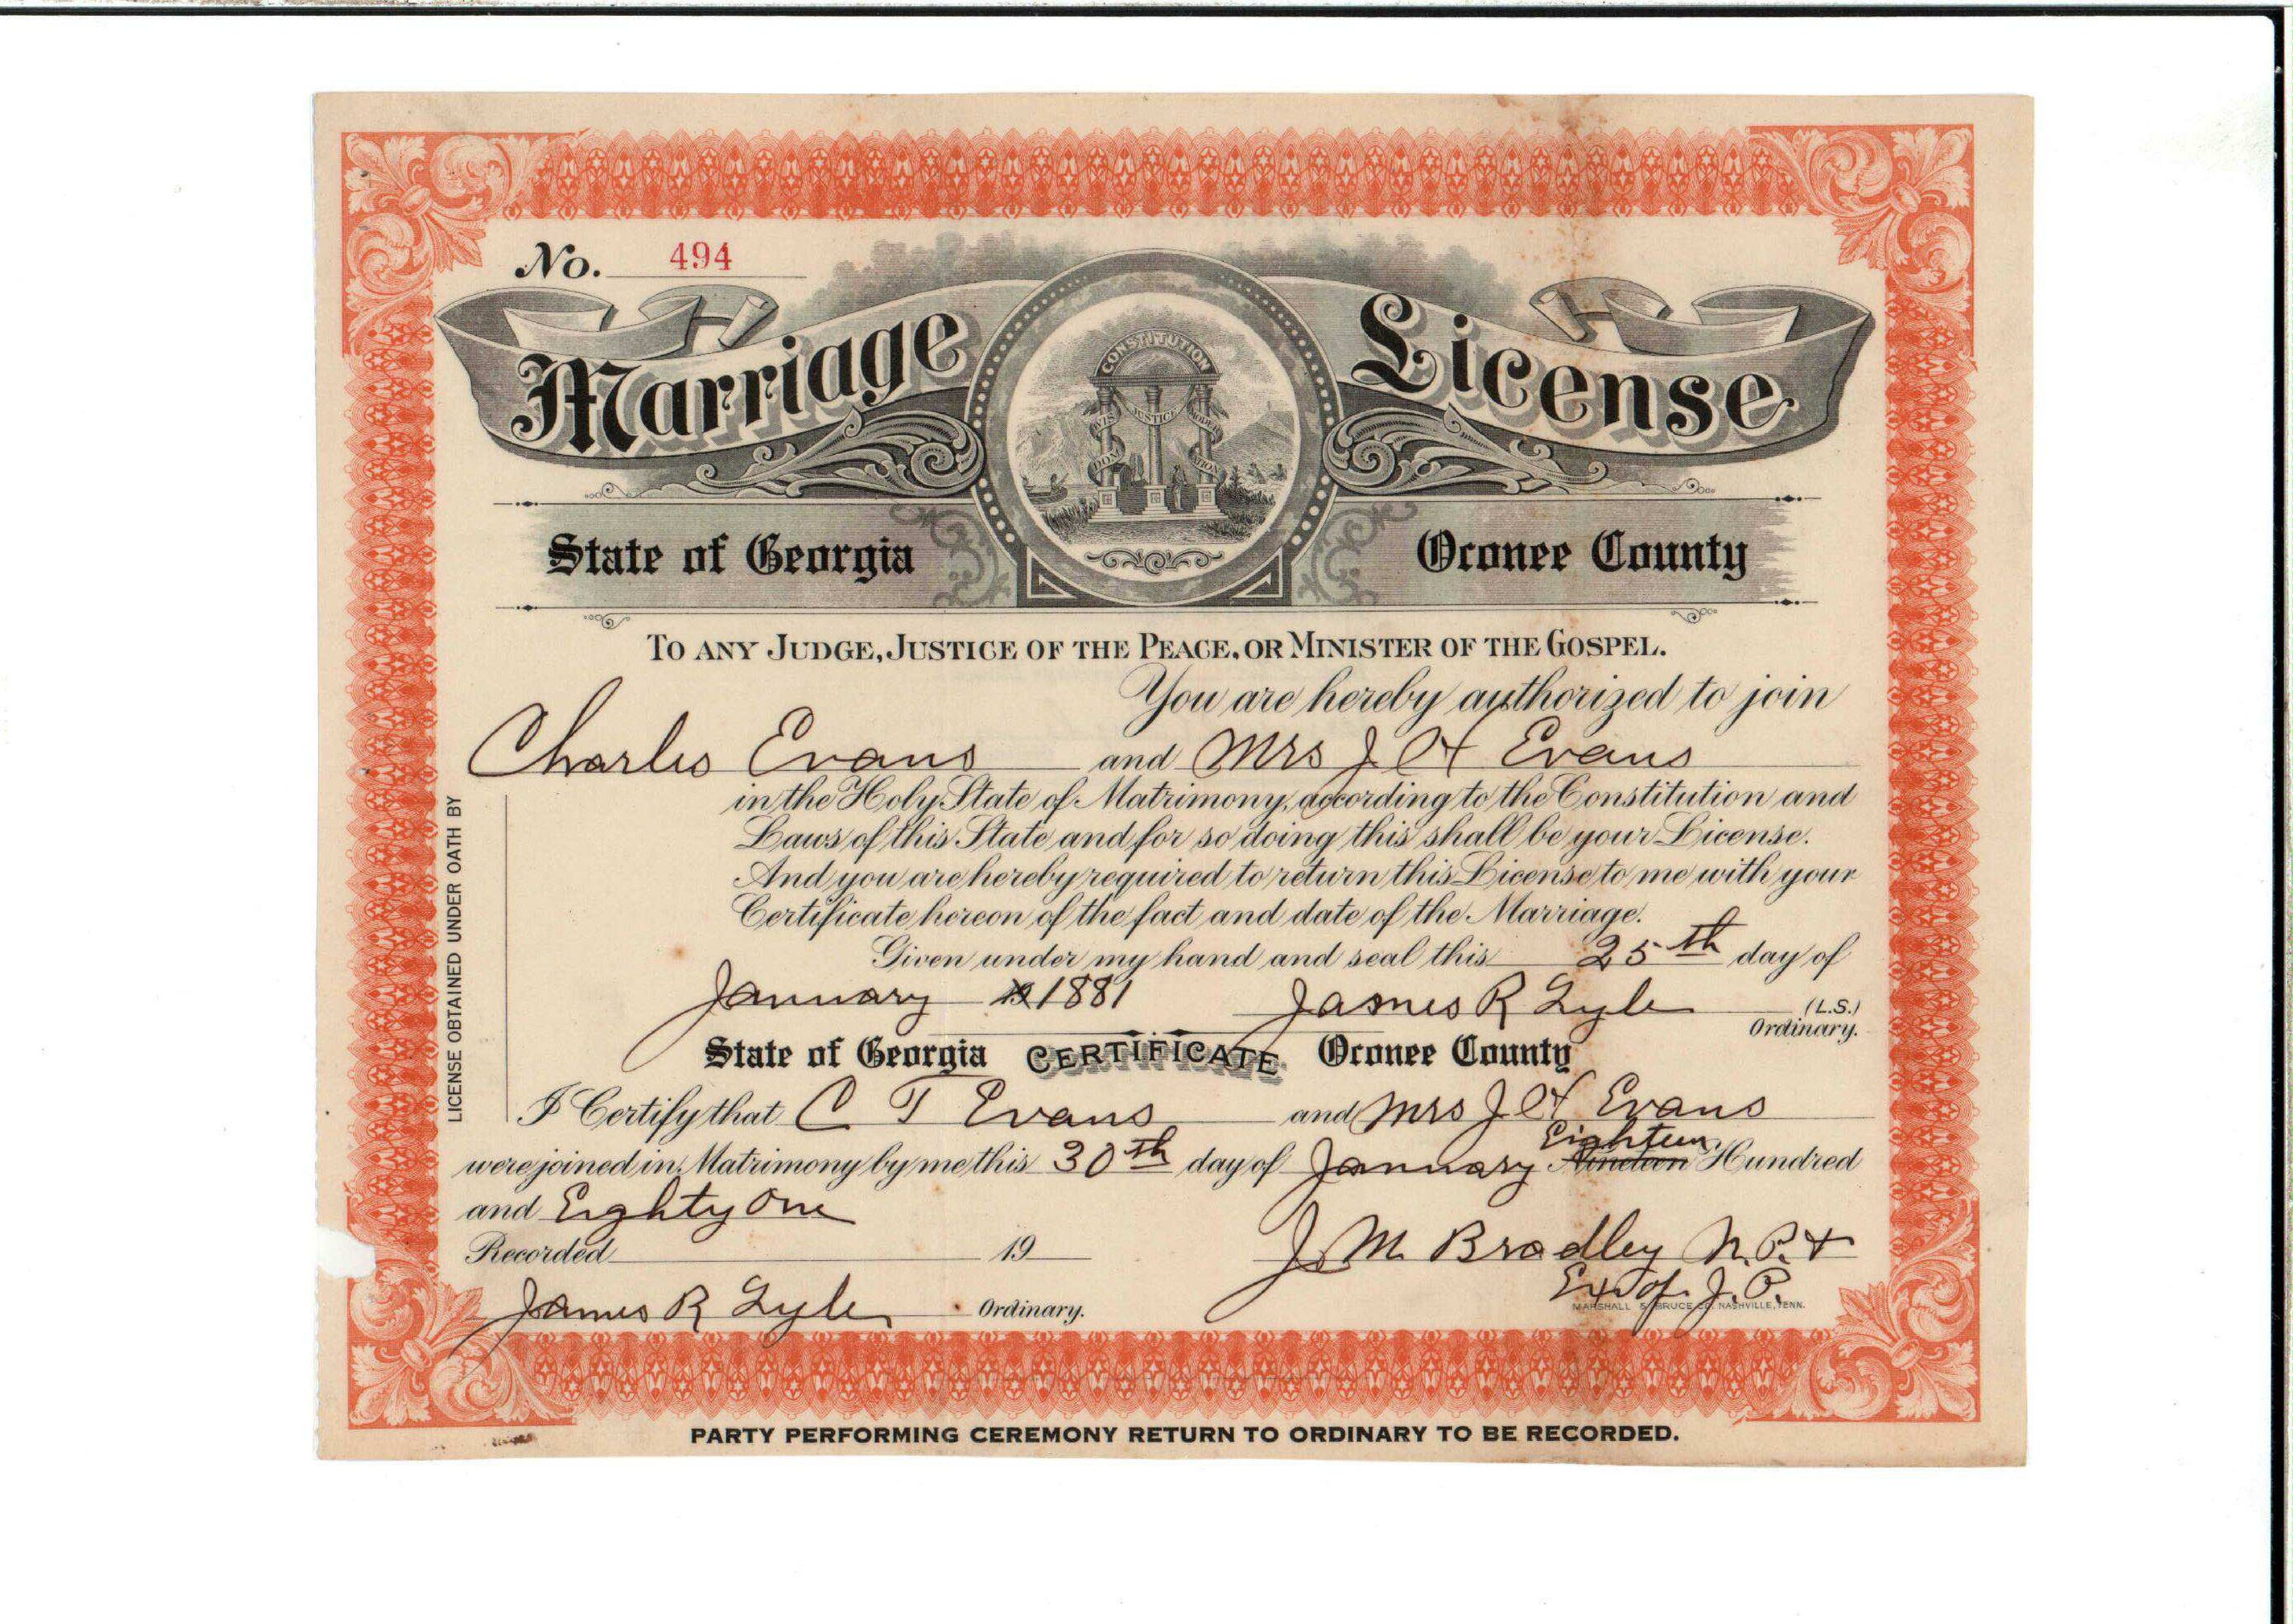 No. 494
Marriage License
CONSTITUTION
WIS DOM JUSTICE MODER ATION
State of Georgia Oconee County
TO ANY JUDGE, JUSTICE OF THE PEACE, OR MINISTER OF THE GOSPEL.
You are hereby authorized to join
Charles Evans and Mrs J H Evans
in the Holy State of Matrimony, according to the Constitution and
Laws of this State and for so doing this shall be your License.
And you are hereby required to return this License to me with your
Certificate hereon of the fact and date of the Marriage.
Given under my hand and seal this 25th day of
January 19 1881 James R Lyle (L.S.)
Ordinary.
LICENSE OBTAINED UNDER OATH BY
State of Georgia CERTIFICATE Oconee County
I Certify that C T Evans and Mrs J H Evans
Eighteen
were joined in Matrimony by me this 30th day of January Nineteen Hundred
and Eighty One
Recorded 19 J. M. Bradley N.P. +
Ex of. J.P.
James R Lyle Ordinary.
MARSHALL & BRUCE CO. NASHVILLE, TENN.
PARTY PERFORMING CEREMONY RETURN TO ORDINARY TO BE RECORDED.